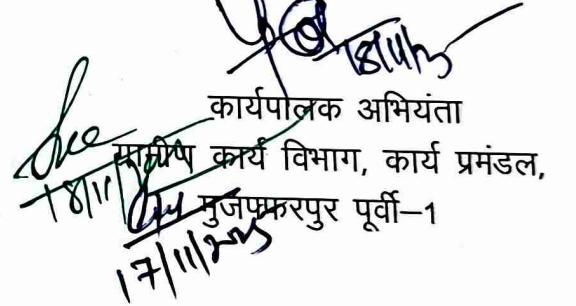 18/11/25
कार्यपालक अभियंता
ग्रामीण कार्य विभाग, कार्य प्रमंडल,
18/11/
मुजफ्फरपुर पूर्वी–1
17/11/2025